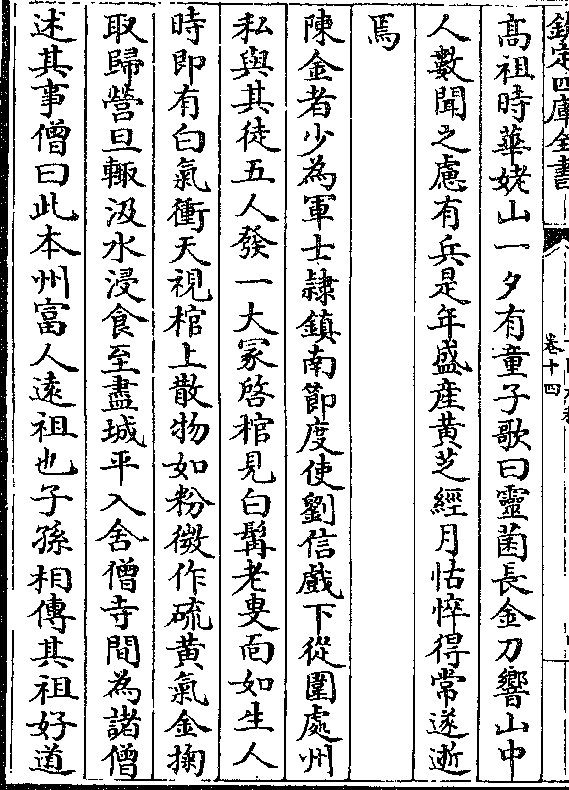 欽定四庫全書
卷十四
高祖時華姥山一夕有童子歌曰靈菌長金刀響山中
人數聞之慮有兵是年盛産黄芝經月怙悴得常遂逝
焉
陳金者少為軍士隷鎮南節度使劉信戲下從圍處州
私與其徒五人發一大冢啓棺見白髯老叟面如生人
時即有白氣衝天視棺上散物如粉微作硫黄氣金掬
取歸營旦輙汲水浸食至盡城平入舍僧寺間為諸僧
述其事僧曰此本州富人遠祖也子孫相傳其祖好道